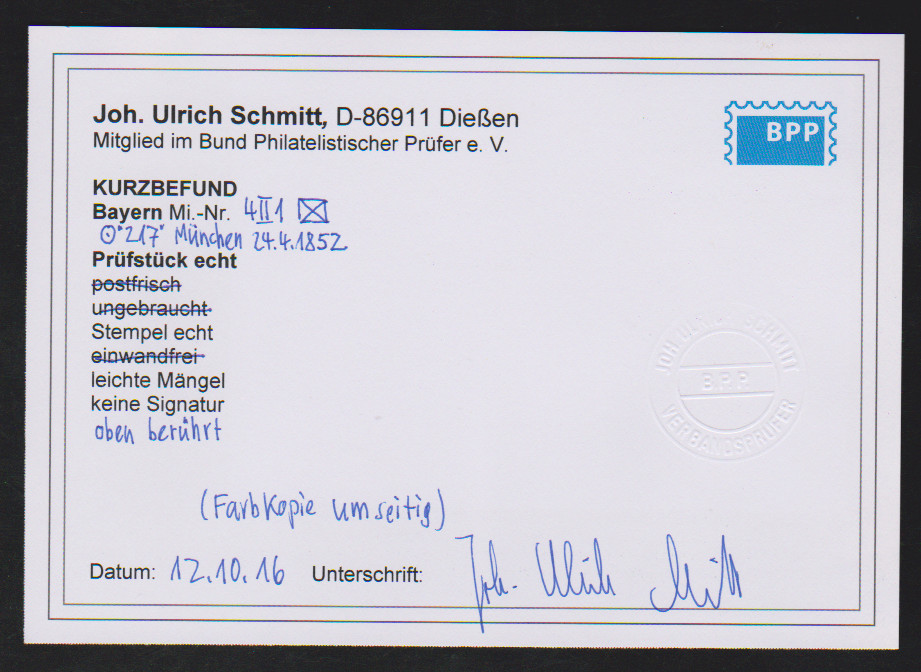 Joh. Ulrich Schmitt, D-86911 Dießen
Mitglied im Bund Philatelistischer Prüfer e. V.
BPP
KURZBEFUND
Bayern Mi.-Nr. 4II1 ☒
⊙"217" München 24.4.1852
Prüfstück echt
postfrisch
ungebraucht
Stempel echt
einwandfrei
leichte Mängel
keine Signatur
oben berührt
JOH. ULRICH SCHMITT
BPP
VERBANDSPRÜFER
(Farbkopie umseitig)
Datum: 12.10.16 Unterschrift: Joh. Ulrich Schmitt